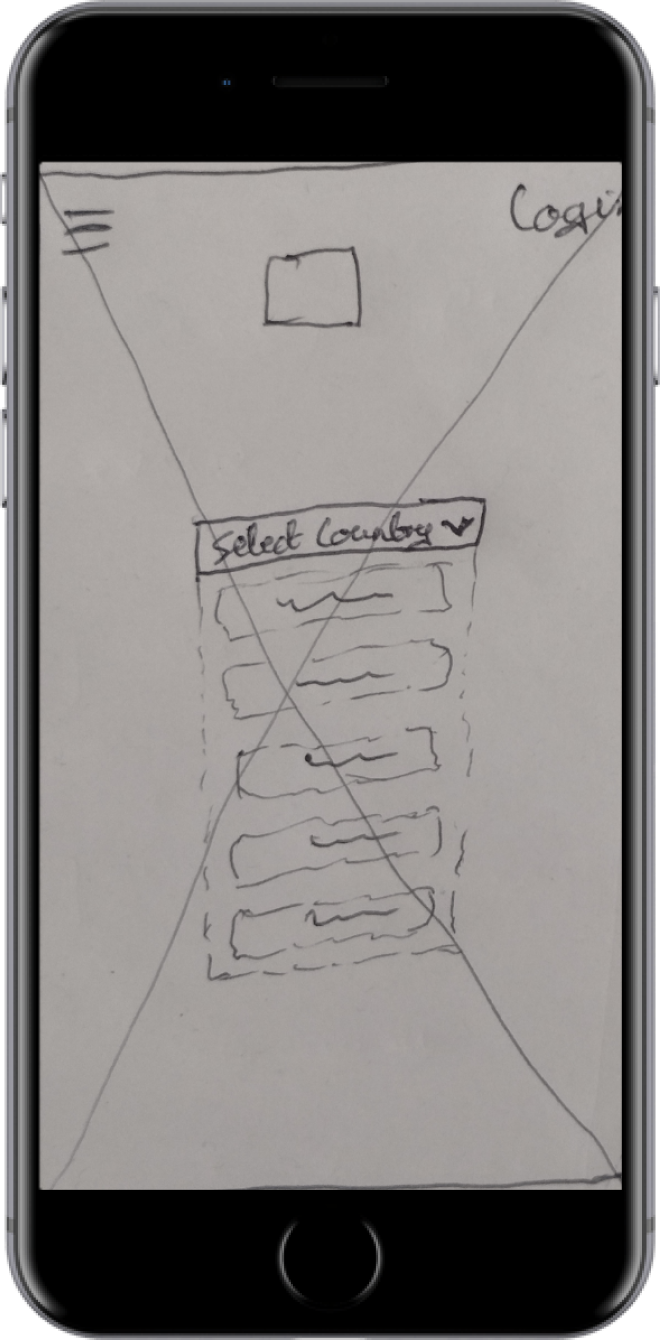 Login
Select Country